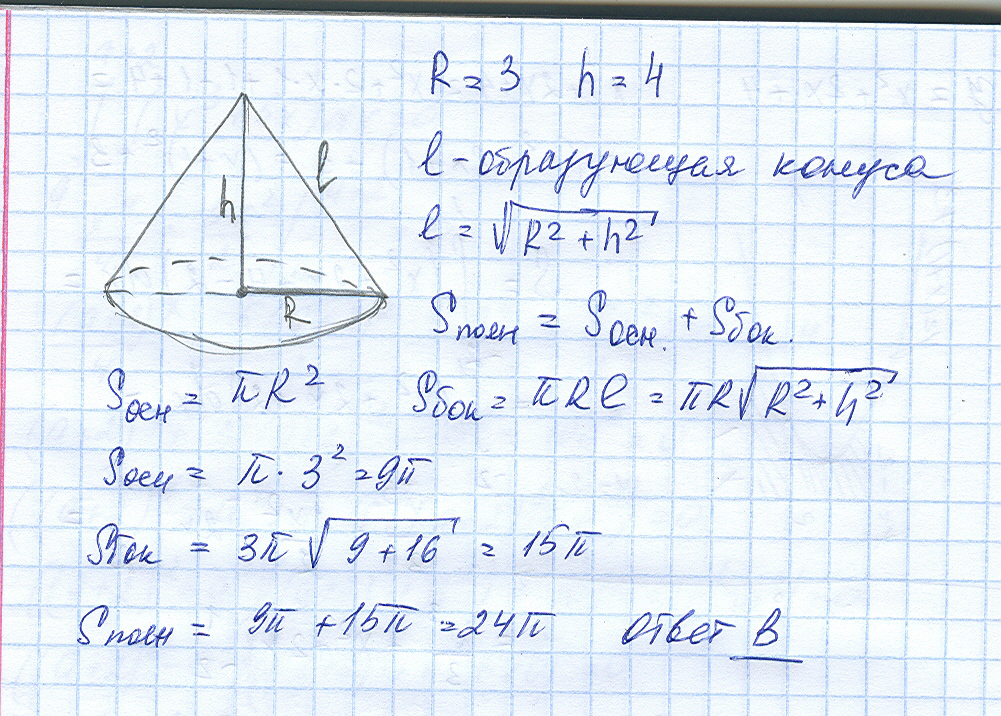 R = 3 h = 4
l - образующая конуса
l = √(R² + h²)
h
l
R
Sполн = Sосн. + Sбок.
Sосн = πR² Sбок = πRl = πR√(R² + h²)
Sосн = π · 3² = 9π
Sбок = 3π √(9 + 16) = 15π
Sполн = 9π + 15π = 24π Ответ В